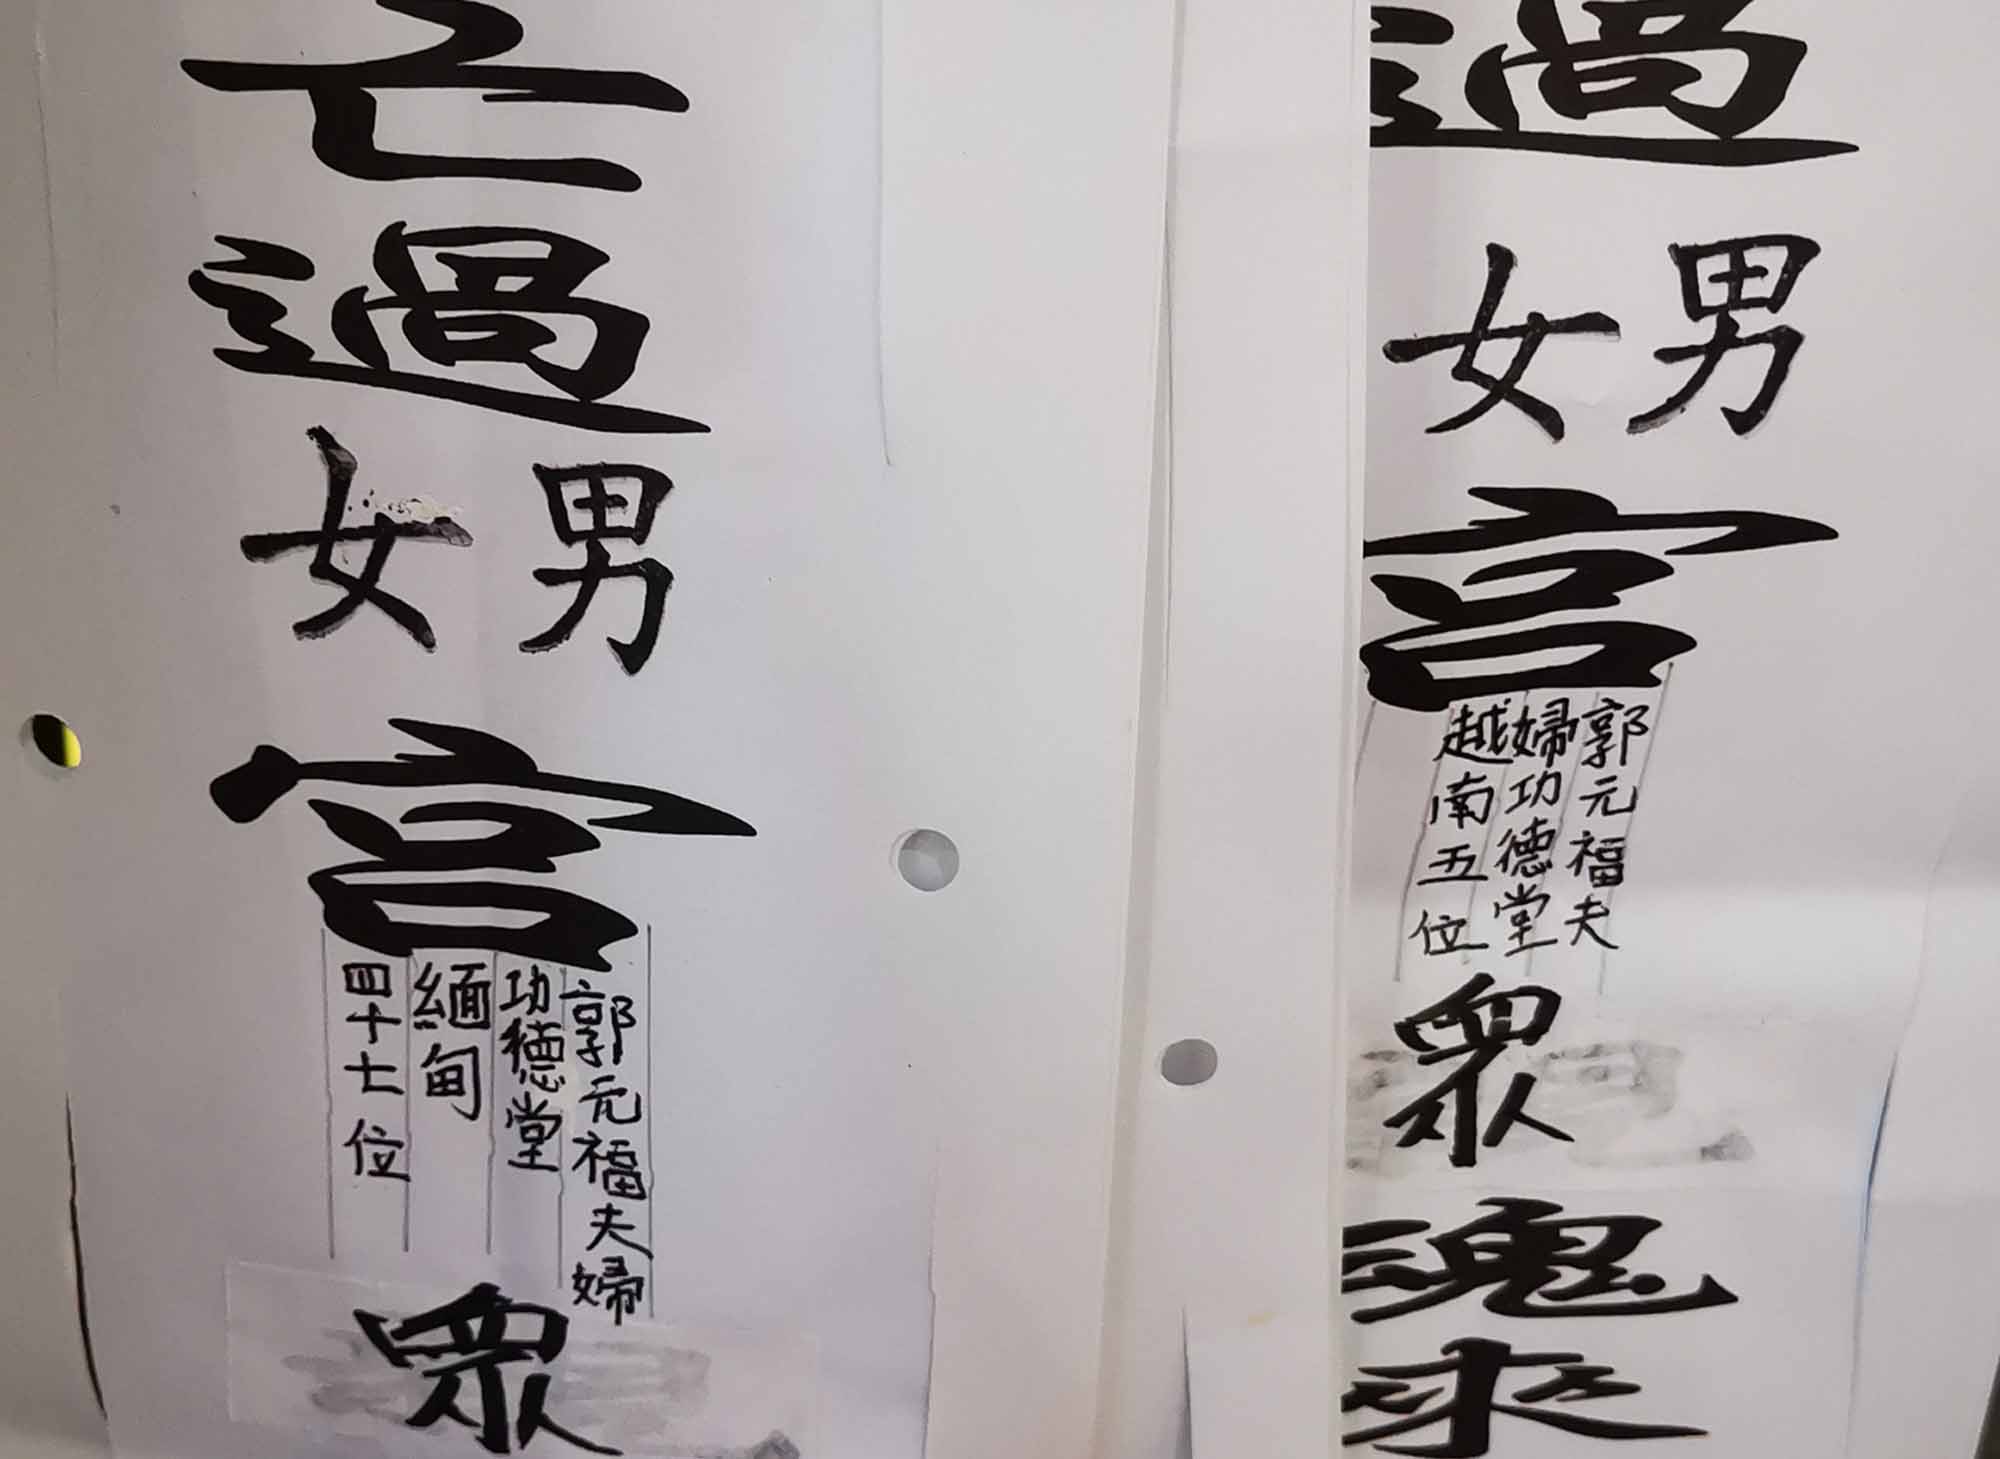 亡過
男
女
宮
郭元福夫婦
功德堂
緬甸
四十七位
眾
過
男
女
宮
郭元福夫
婦功德堂
越南五位
眾魂來